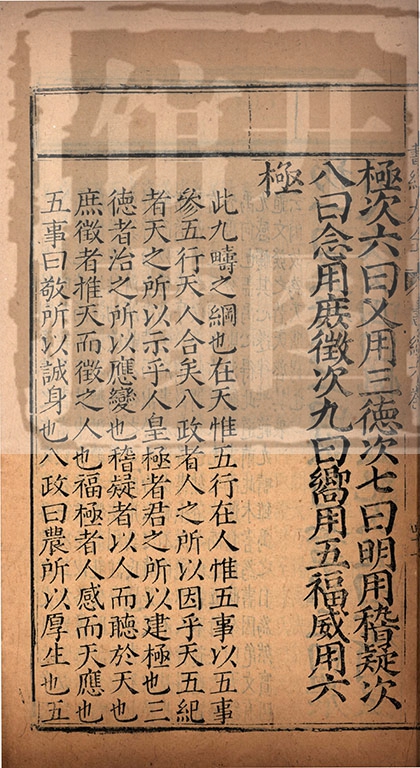 極次六曰乂用三徳次七曰明用稽疑次
八曰念用庶徵次九曰嚮用五福威用六
極
此九疇之綱也在天惟五行在人惟五事以五事
參五行天人合矣八政者人之所以因乎天五紀
者天之所以示乎人皇極者君之所以建極也三
徳者治之所以應變也稽疑者以人而聽於天也
庶徵者推天而徵之人也福極者人感而天應也
五事曰敬所以誠身也八政曰農所以厚生也五